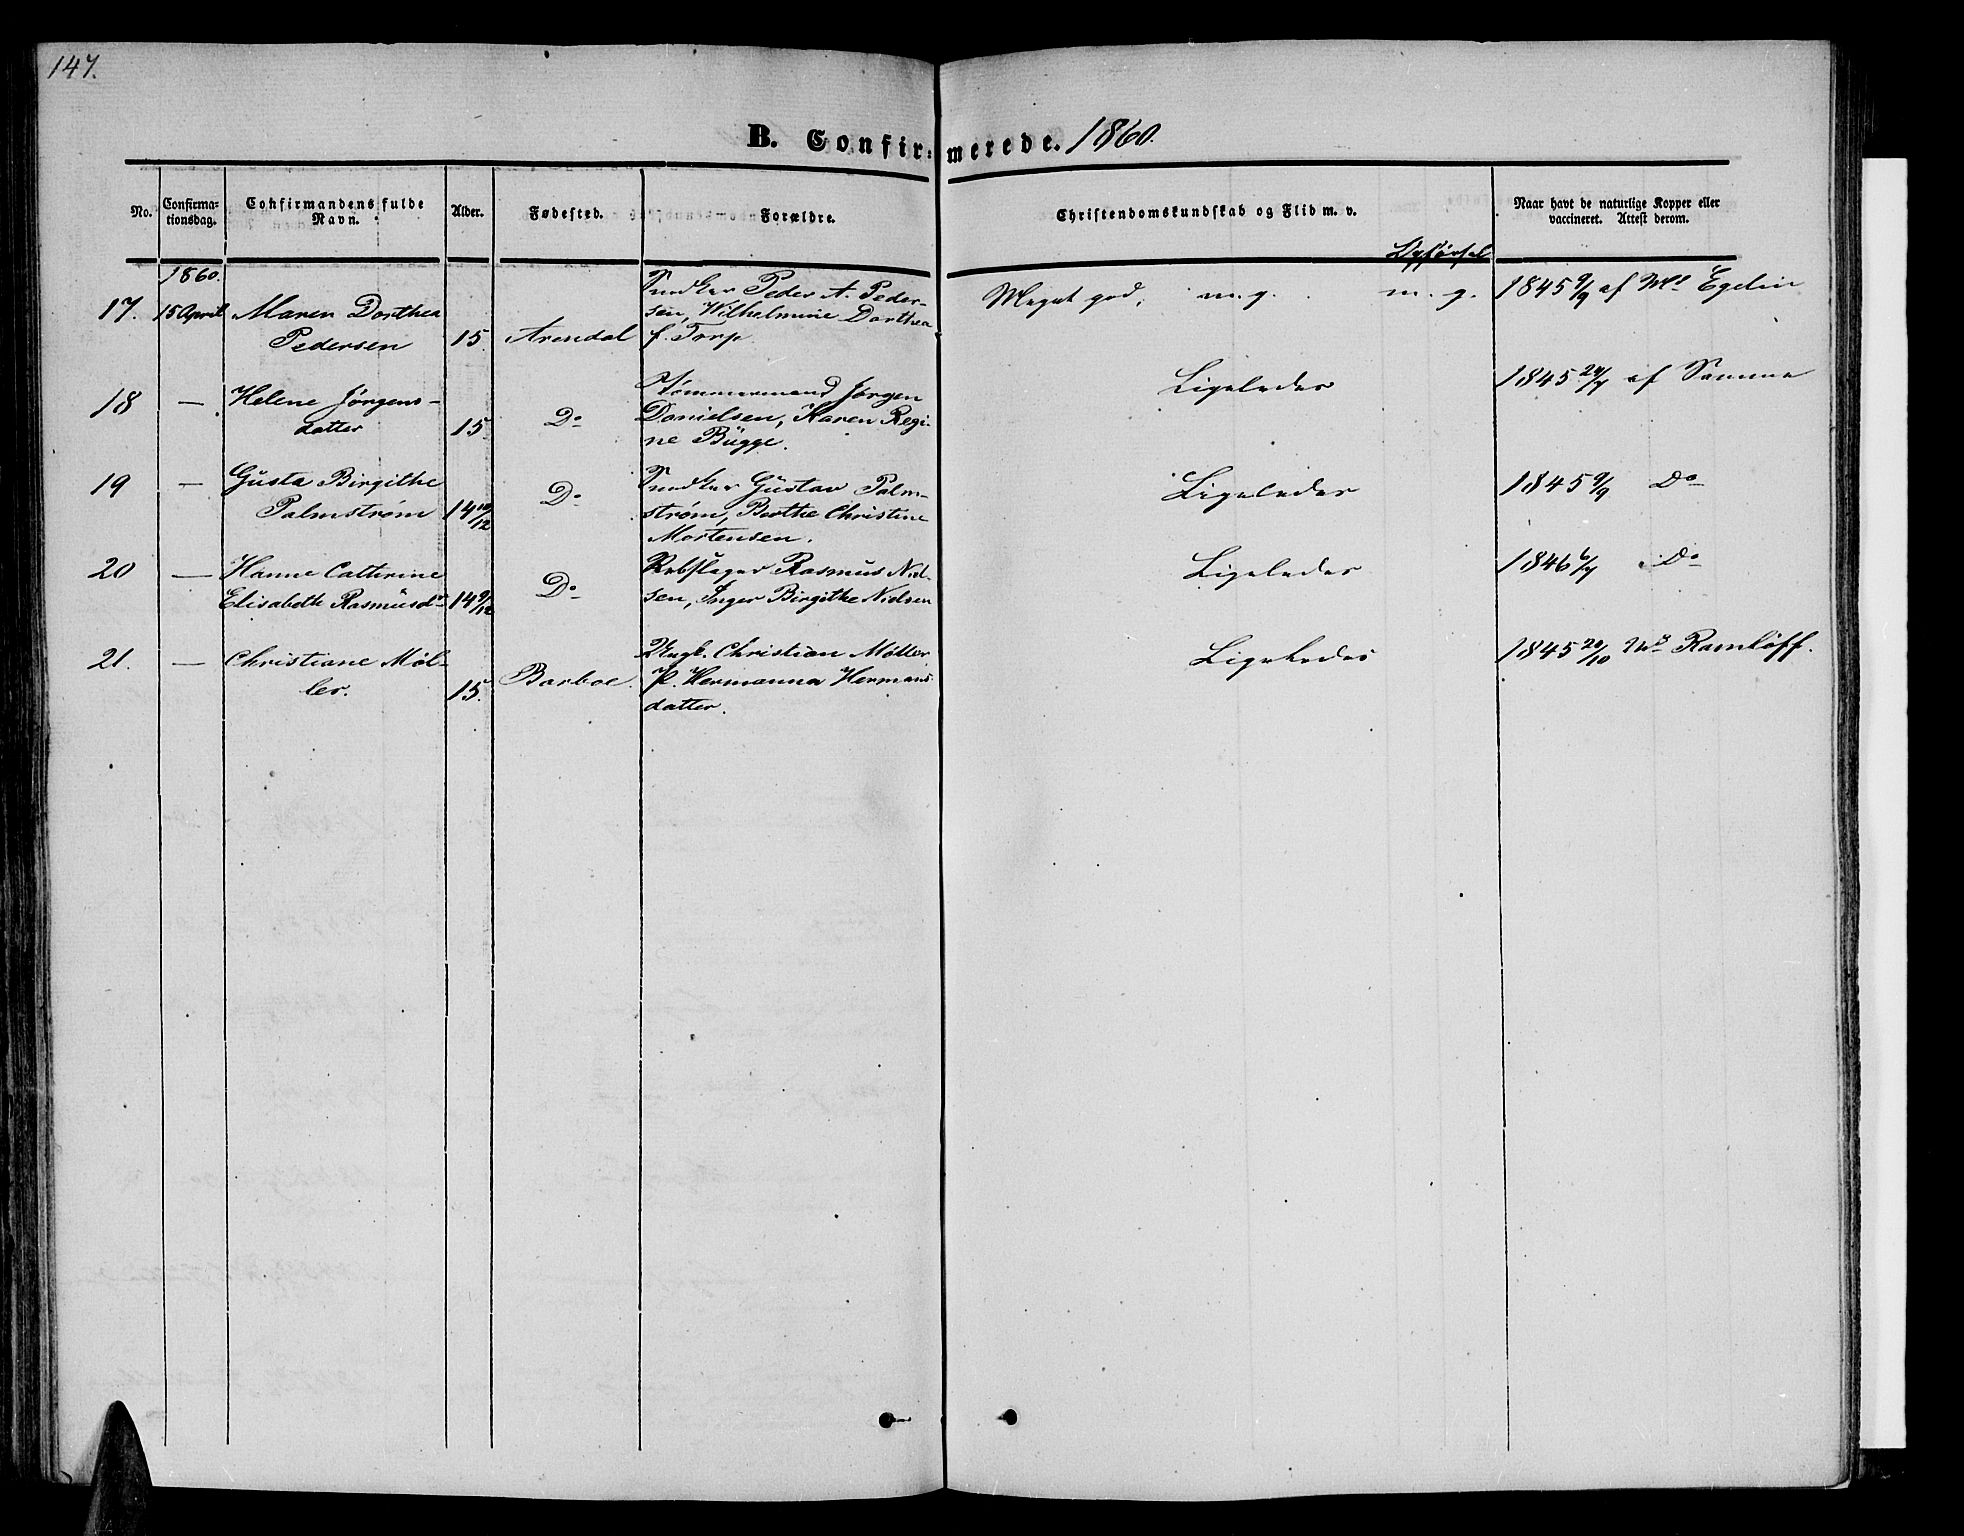 147.
B. Confirmerede. 1860.
No.
Confirmationsdag.
Confirmandens fulde Navn.
Alder.
Fødested.
Forældre.
Christendomskundskab og Flid m. v.
Opførsel
Naar havt de naturlige Kopper eller vaccineret. Attest derom.
1860.
17. 15 April Maren Dorthea
Pedersen 15 Arendal
Snedker Peder A. Peder-
sen, Wilhelmine Dorthea
f. Torp.
Meget god, m.g. m.g.
1845 9/9 af Egelin
18 — Helene Jørgens-
datter 15 Do
Tømmermand Jørgen
Danielsen, Karen Regi-
ne Bügge.
Ligeledes
1845 24/7 af Samme
19 — Gusta Birgithe
Palmstrøm 14 10/12 Do
Snedker Güstav Palm-
strøm, Berthe Christine
Mortensen.
Ligeledes
1845 9/9 Do
20 — Hanne Cathrine
Elisabeth Rasmüsdr 14 9/12 Do
Rebslager Rasmus Niel-
sen, Inger Birgithe Nielsen
Ligeledes
1846 6/7 Do
21. — Christiane Møl-
ler. 15. Barboe.
Ungk. Christian Møller,
P. Hermanna Hermans-
datter.
Ligeledes
1845 20/10 Ramløff.